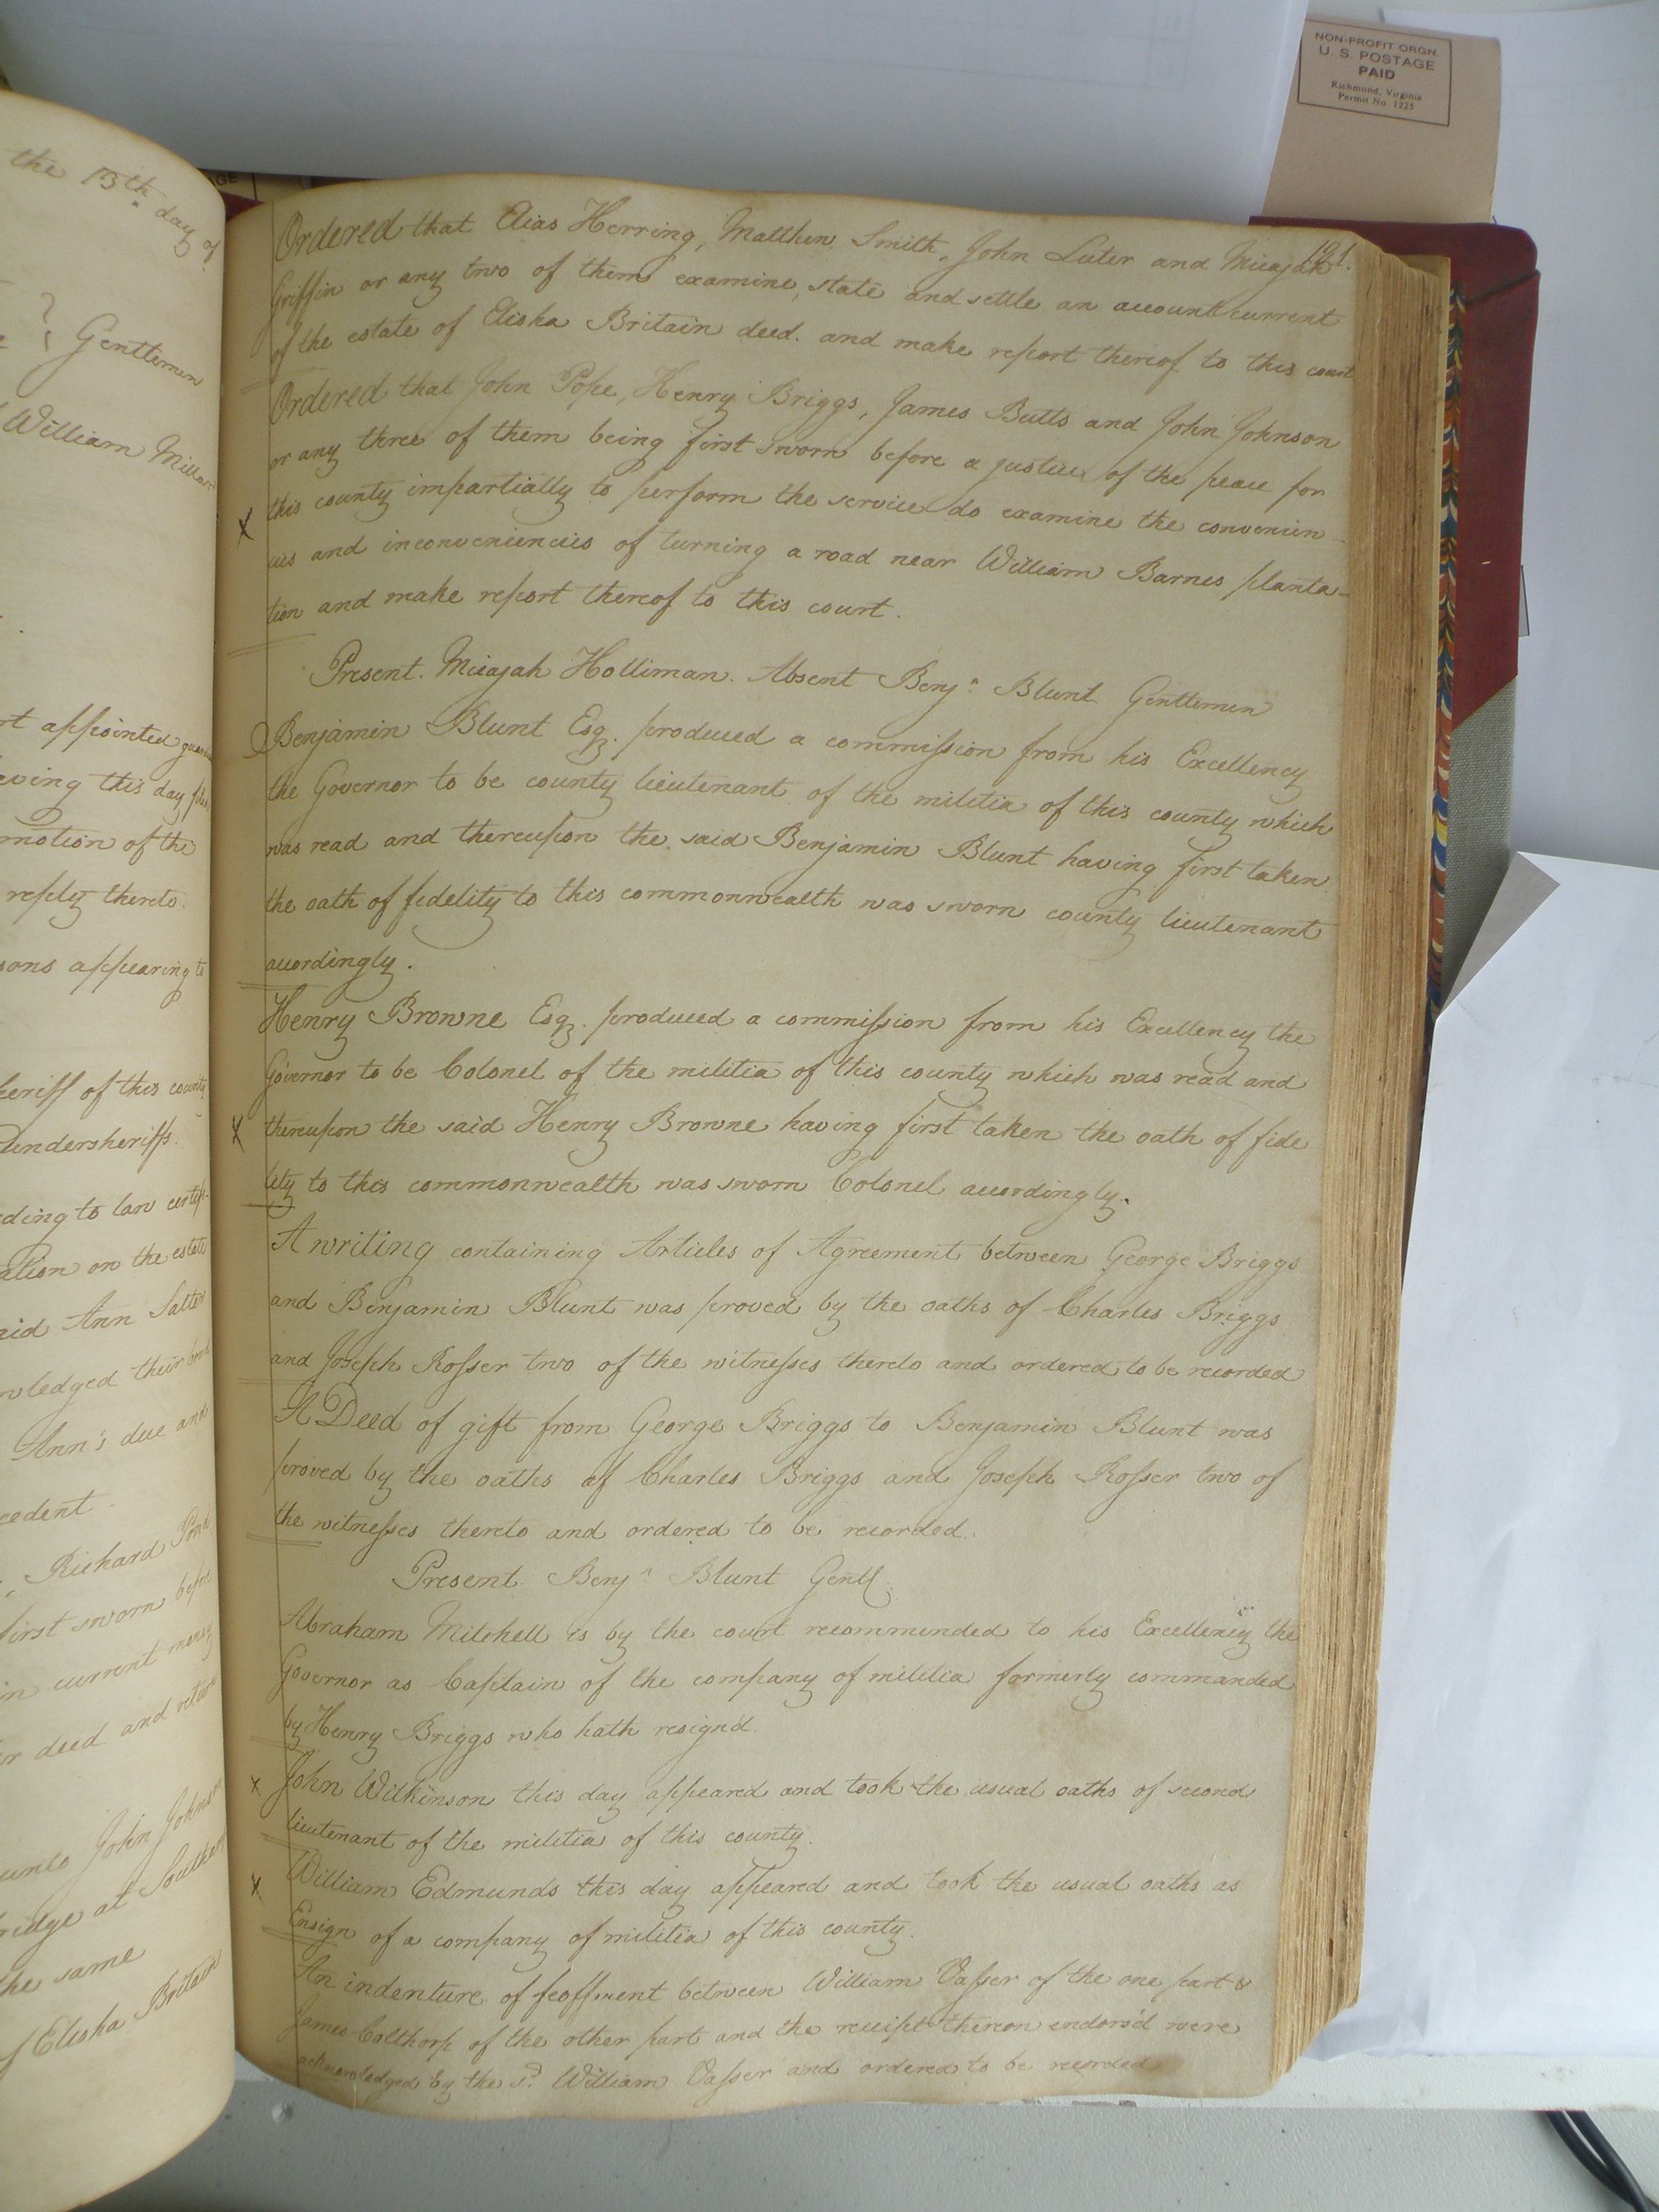 NON-PROFIT ORGN.
U. S. POSTAGE
PAID
Richmond, Virginia
Permit No. 1225
the 15th. day of
Gentlemen
William
rt appointed
eving this day
motion of the
reply thereto.
sons appearing to
heriff of this county
undersheriffs.
ding to law
ation on the estate
aid Ann Salter
wledged their bond
Ann's due and
cedent
Richard
first sworn before
in current money
r deed and return
unto John Johnson
ridge at
the same
of Elisha Britain
Ordered that Elias Herring, Matthew Smith, John Luter and Micajah
Griffin or any two of them examine, state and settle an account current
of the estate of Elisha Britain decd. and make report thereof to this court
Ordered that John Pope, Henry Briggs, James Butts and John Johnson
or any three of them being first sworn before a justice of the peace for
this county impartially to perform the service do examine the convenien
cies and inconveniencies of turning a road near William Barnes planta-
tion and make report thereof to this court.
Present. Micajah Holliman. Absent Benjn. Blunt Gentlemen
Benjamin Blunt Esq. produced a commission from his Excellency
the Governor to be county lieutenant of the militia of this county which
was read and thereupon the said Benjamin Blunt having first taken
the oath of fidelity to this commonwealth was sworn county lieutenant
accordingly.
Henry Browne Esq. produced a commission from his Excellency the
Governor to be Colonel of the militia of this county which was read and
thereupon the said Henry Browne having first taken the oath of fide
lity to this commonwealth was sworn Colonel accordingly.
A writing containing Articles of Agreement between George Briggs
and Benjamin Blunt was proved by the oaths of Charles Briggs
and Joseph Rosser two of the witnesses thereto and ordered to be recorded
A Deed of gift from George Briggs to Benjamin Blunt was
proved by the oaths of Charles Briggs and Joseph Rosser two of
the witnesses thereto and ordered to be recorded.
Present Benjn Blunt Gentl.
Abraham Mitchell is by the court recommended to his Excellency the
Governor as Captain of the company of militia formerly commanded
by Henry Briggs who hath resign'd.
John Wilkinson this day appeared and took the usual oaths of second
lieutenant of the militia of this county.
William Edmunds this day appeared and took the usual oaths as
Ensign of a company of militia of this county.
An indenture of feoffment between William Vasser of the one part &
James Colthorp of the other part and the receipt thereon endors'd were
acknowledged by the sd. William Vasser and ordered to be recorded